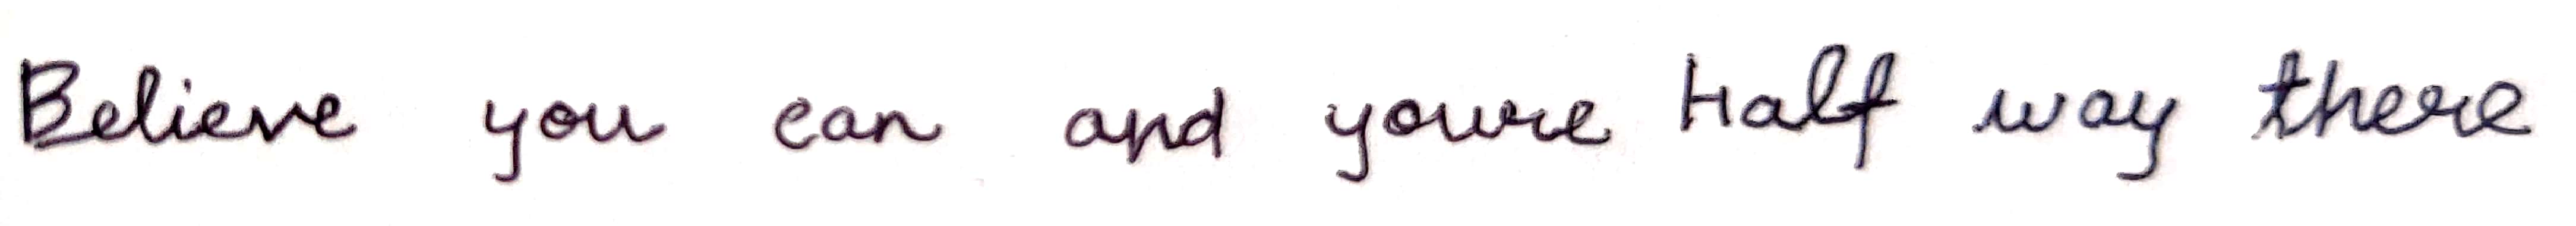 Believe you can and youre Half way there